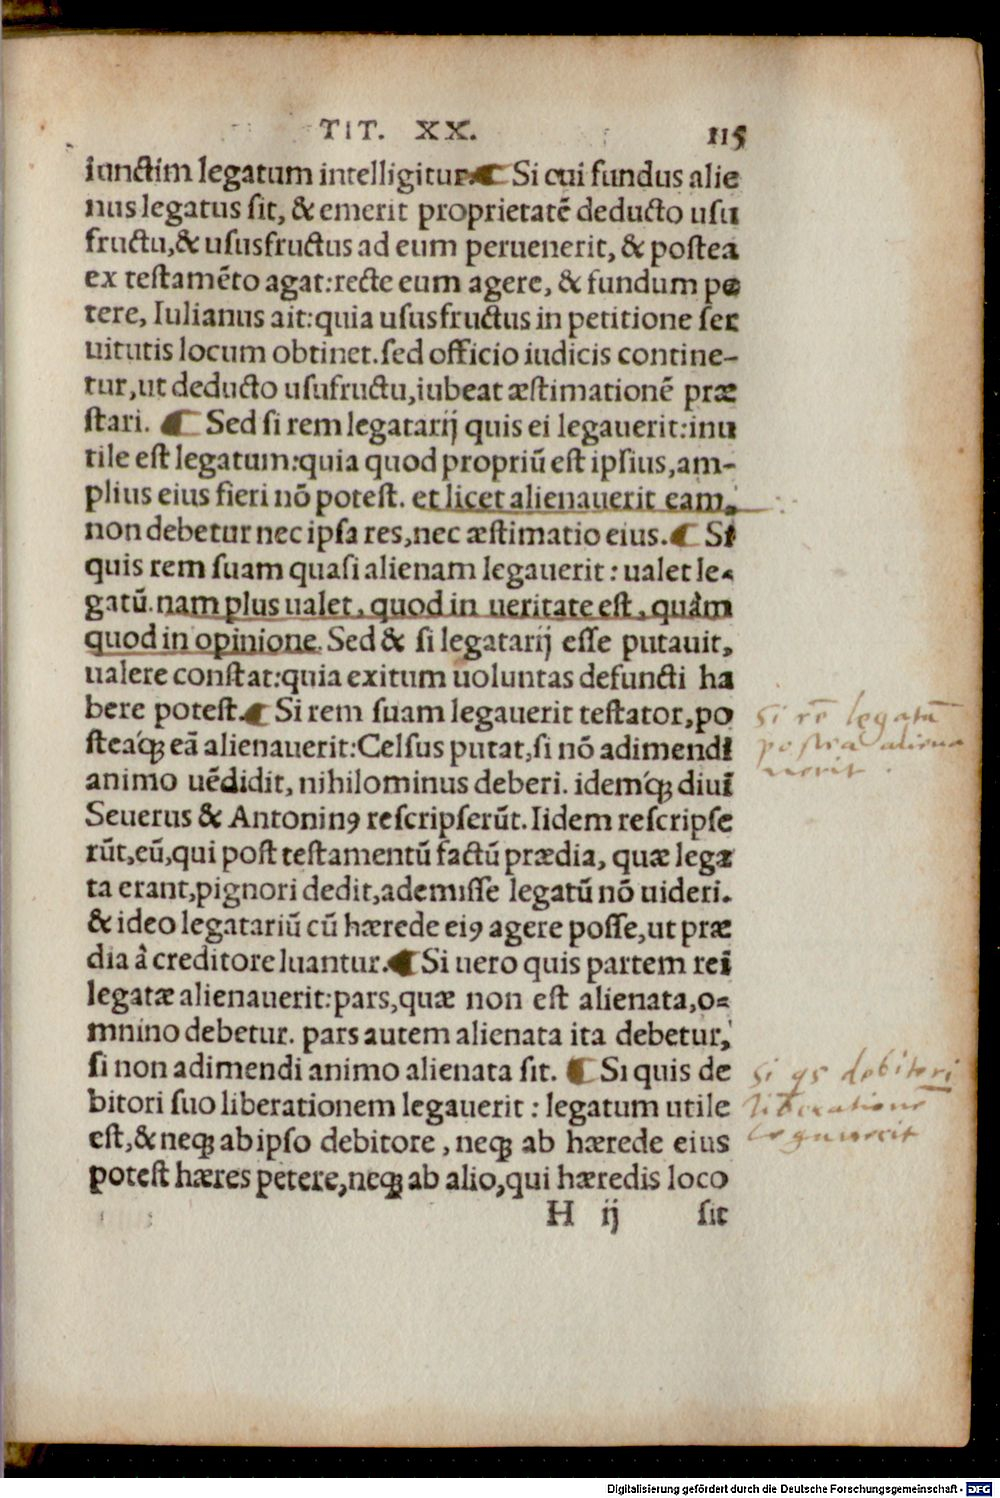 TIT. XX. 115
iunctim legatum intelligitur.¶ Si cui fundus alie
nus legatus sit, & emerit proprietatē deducto usu
fructu,& ususfructus ad eum peruenerit, & postea
ex testamēto agat:recte eum agere, & fundum pe
tere, Iulianus ait:quia ususfructus in petitione ser
uitutis locum obtinet.sed officio iudicis contine-
tur,ut deducto usufructu,iubeat æstimationē præ
stari. ¶ Sed si rem legatarij quis ei legauerit:inu
tile est legatum:quia quod propriū est ipsius,am-
plius eius fieri nō potest. et licet alienauerit eam,
non debetur nec ipsa res,nec æstimatio eius.¶ Si
quis rem suam quasi alienam legauerit : ualet le-
gatū.nam plus ualet, quod in ueritate est, quàm
quod in opinione. Sed & si legatarij esse putauit,
ualere constat:quia exitum uoluntas defuncti ha
bere potest.¶ Si rem suam legauerit testator,po
steaq́ꝫ eā alienauerit:Celsus putat,si nō adimendi
animo uēdidit, nihilominus deberi. idemq́ꝫ diui
Seuerus & Antoninꝰ rescripserūt. Iidem rescripse
rūt,eū,qui post testamentū factū prædia, quæ lega
ta erant,pignori dedit,ademisse legatū nō uideri.
& ideo legatariū cū hærede eiꝰ agere posse,ut præ
dia à creditore luantur.¶ Si uero quis partem rei
legatæ alienauerit:pars,quæ non est alienata,o-
mnino debetur. pars autem alienata ita debetur,
si non adimendi animo alienata sit. ¶ Si quis de
bitori suo liberationem legauerit : legatum utile
est,& neqꝫ ab ipso debitore , neqꝫ ab hærede eius
potest hæres petere,neqꝫ ab alio,qui hæredis loco
H ij sit
si rē legatā
postea aliena
uerit .
si qs debitori
liberationē
legauerit
Digitalisierung gefördert durch die Deutsche Forschungsgemeinschaft - DFG